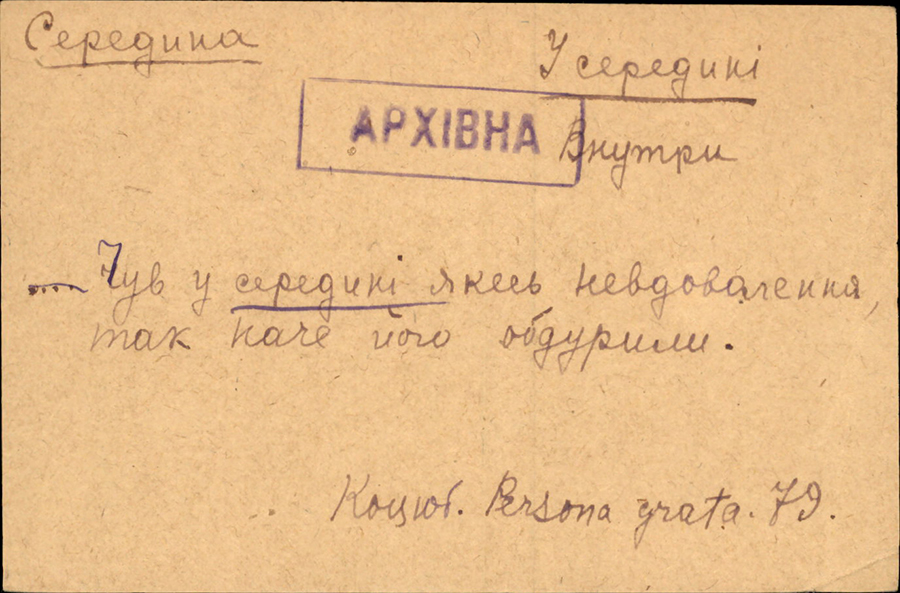 Середина
У середині
АРХІВНА
Внутри
.... Чув у середині якесь невдоволення,
так наче його обдурили.
Коцюб. Persona grata. 79.